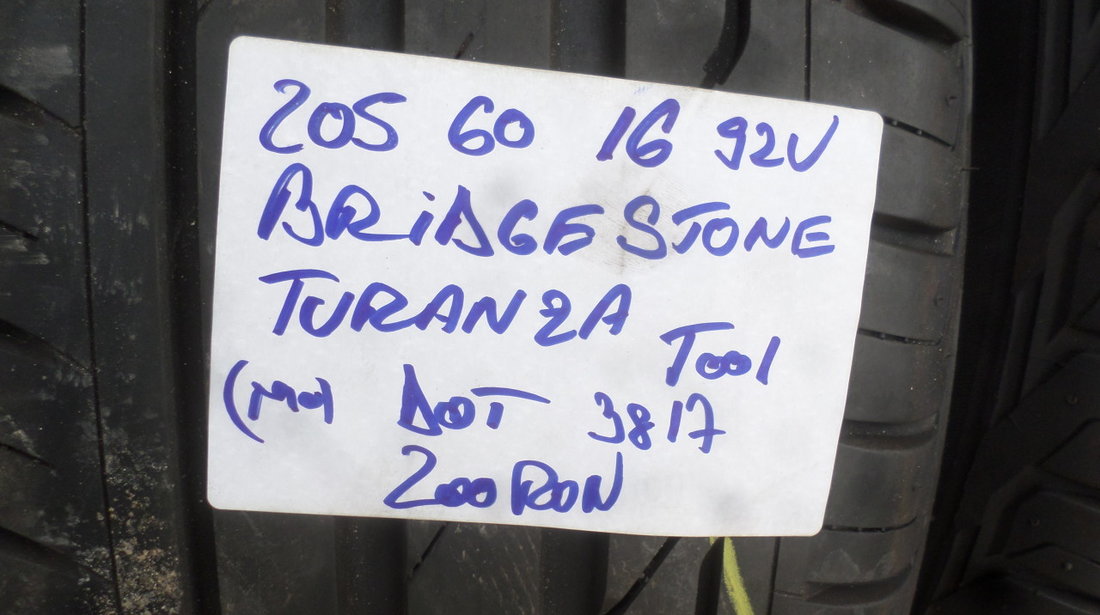 205 60 16 92V
BRiDGESTONE
TURANZA
T001
(MO) DOT 3817
200 RON